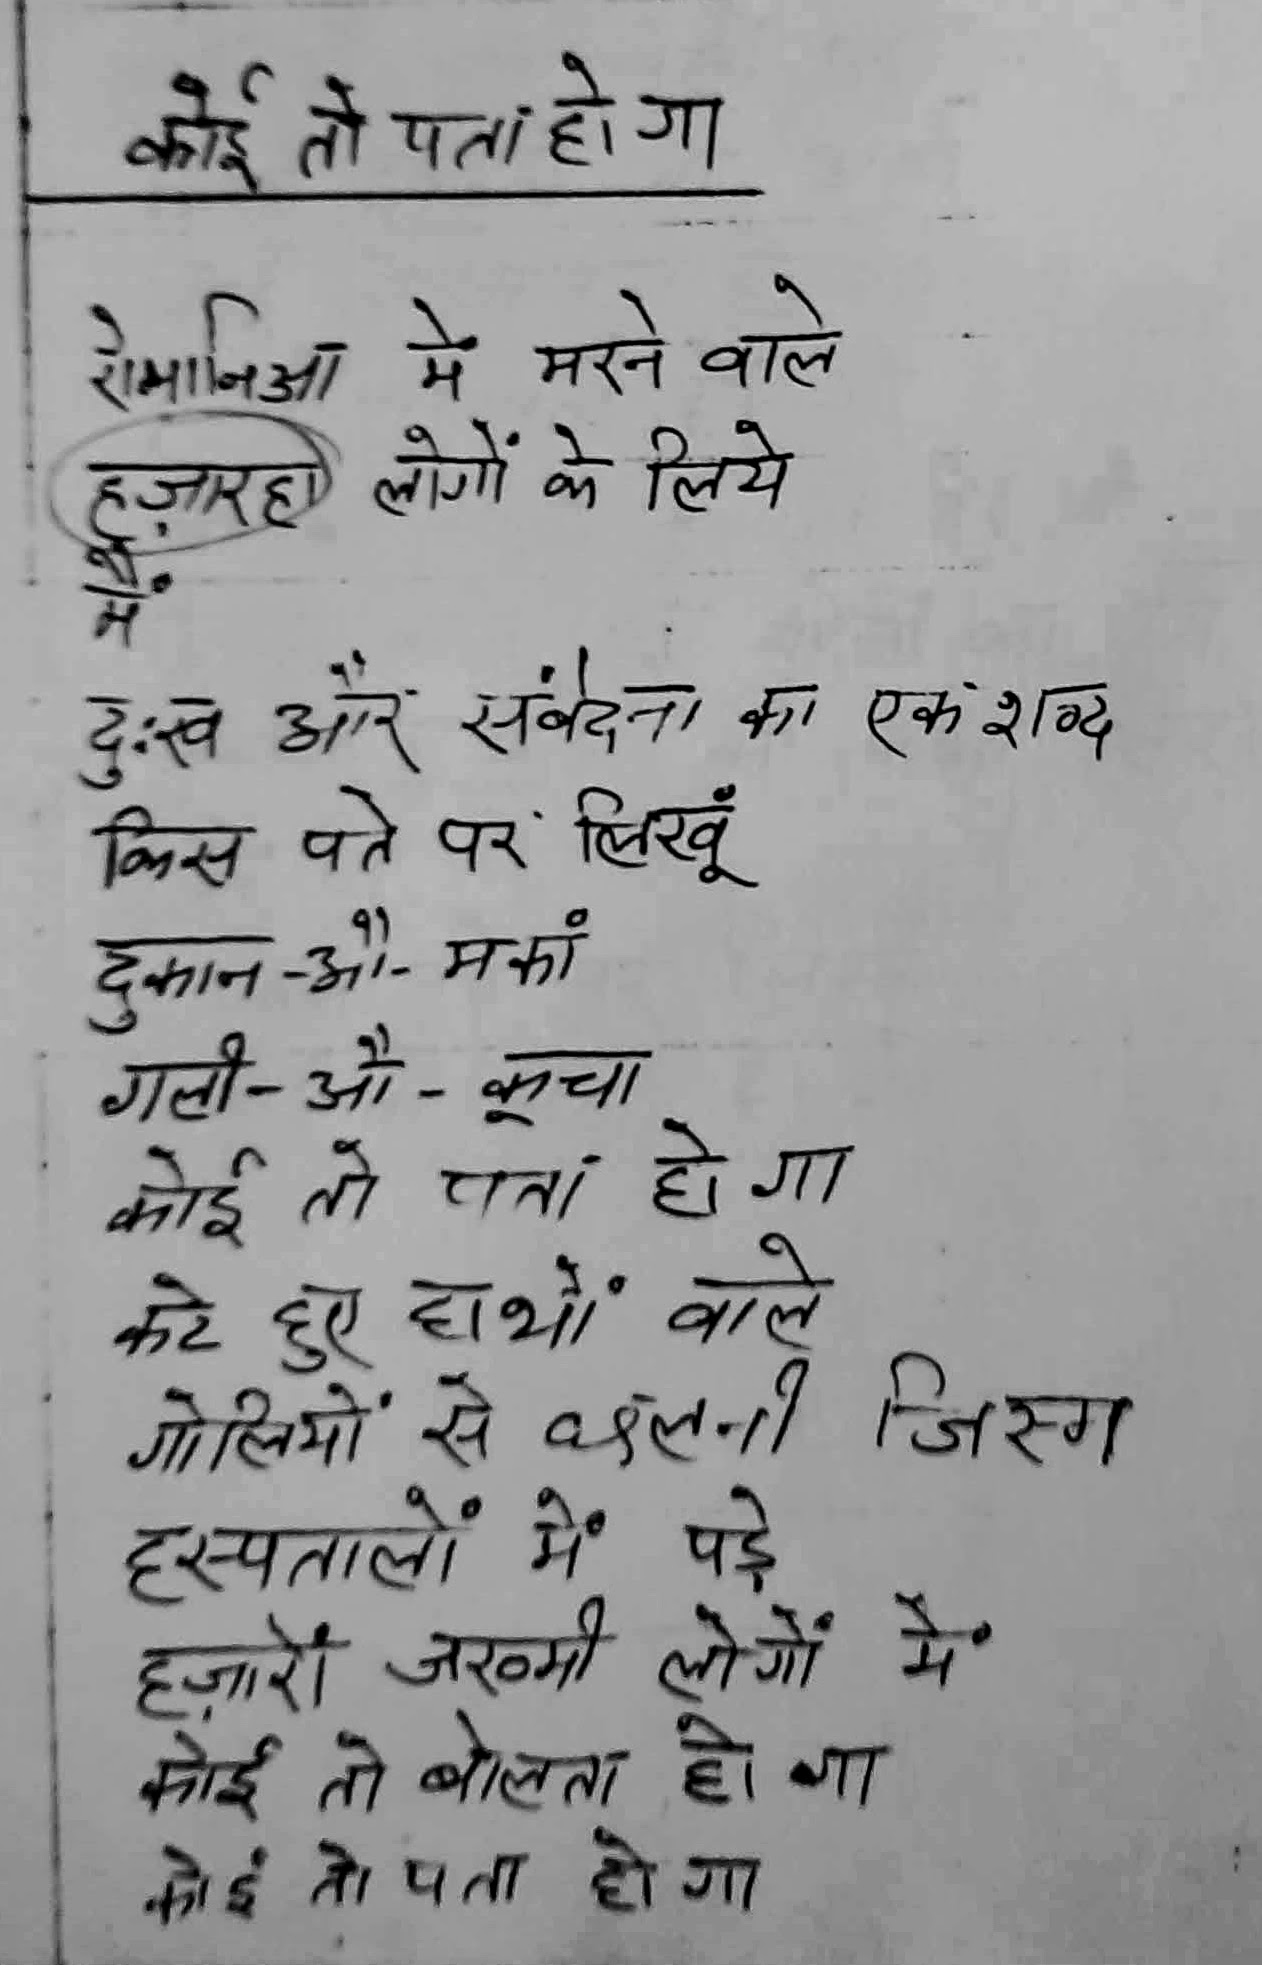 कोई तो पता होगा
रोमानिआ में मरने वाले
हज़ारहा लोगों के लिये
मैं
दुःख और संवेदना का एक शब्द
किस पते पर लिखूं
दुकान-औ-मकां
गली-औ-कूचा
कोई तो पता हो गा
कटे हुए हाथों वाले
गोलियों से छलनी जिस्म
हस्पतालों में पड़े
हज़ारों जख्मी लोगों में
कोई तो बोलता हो गा
कोई तो पता हो गा